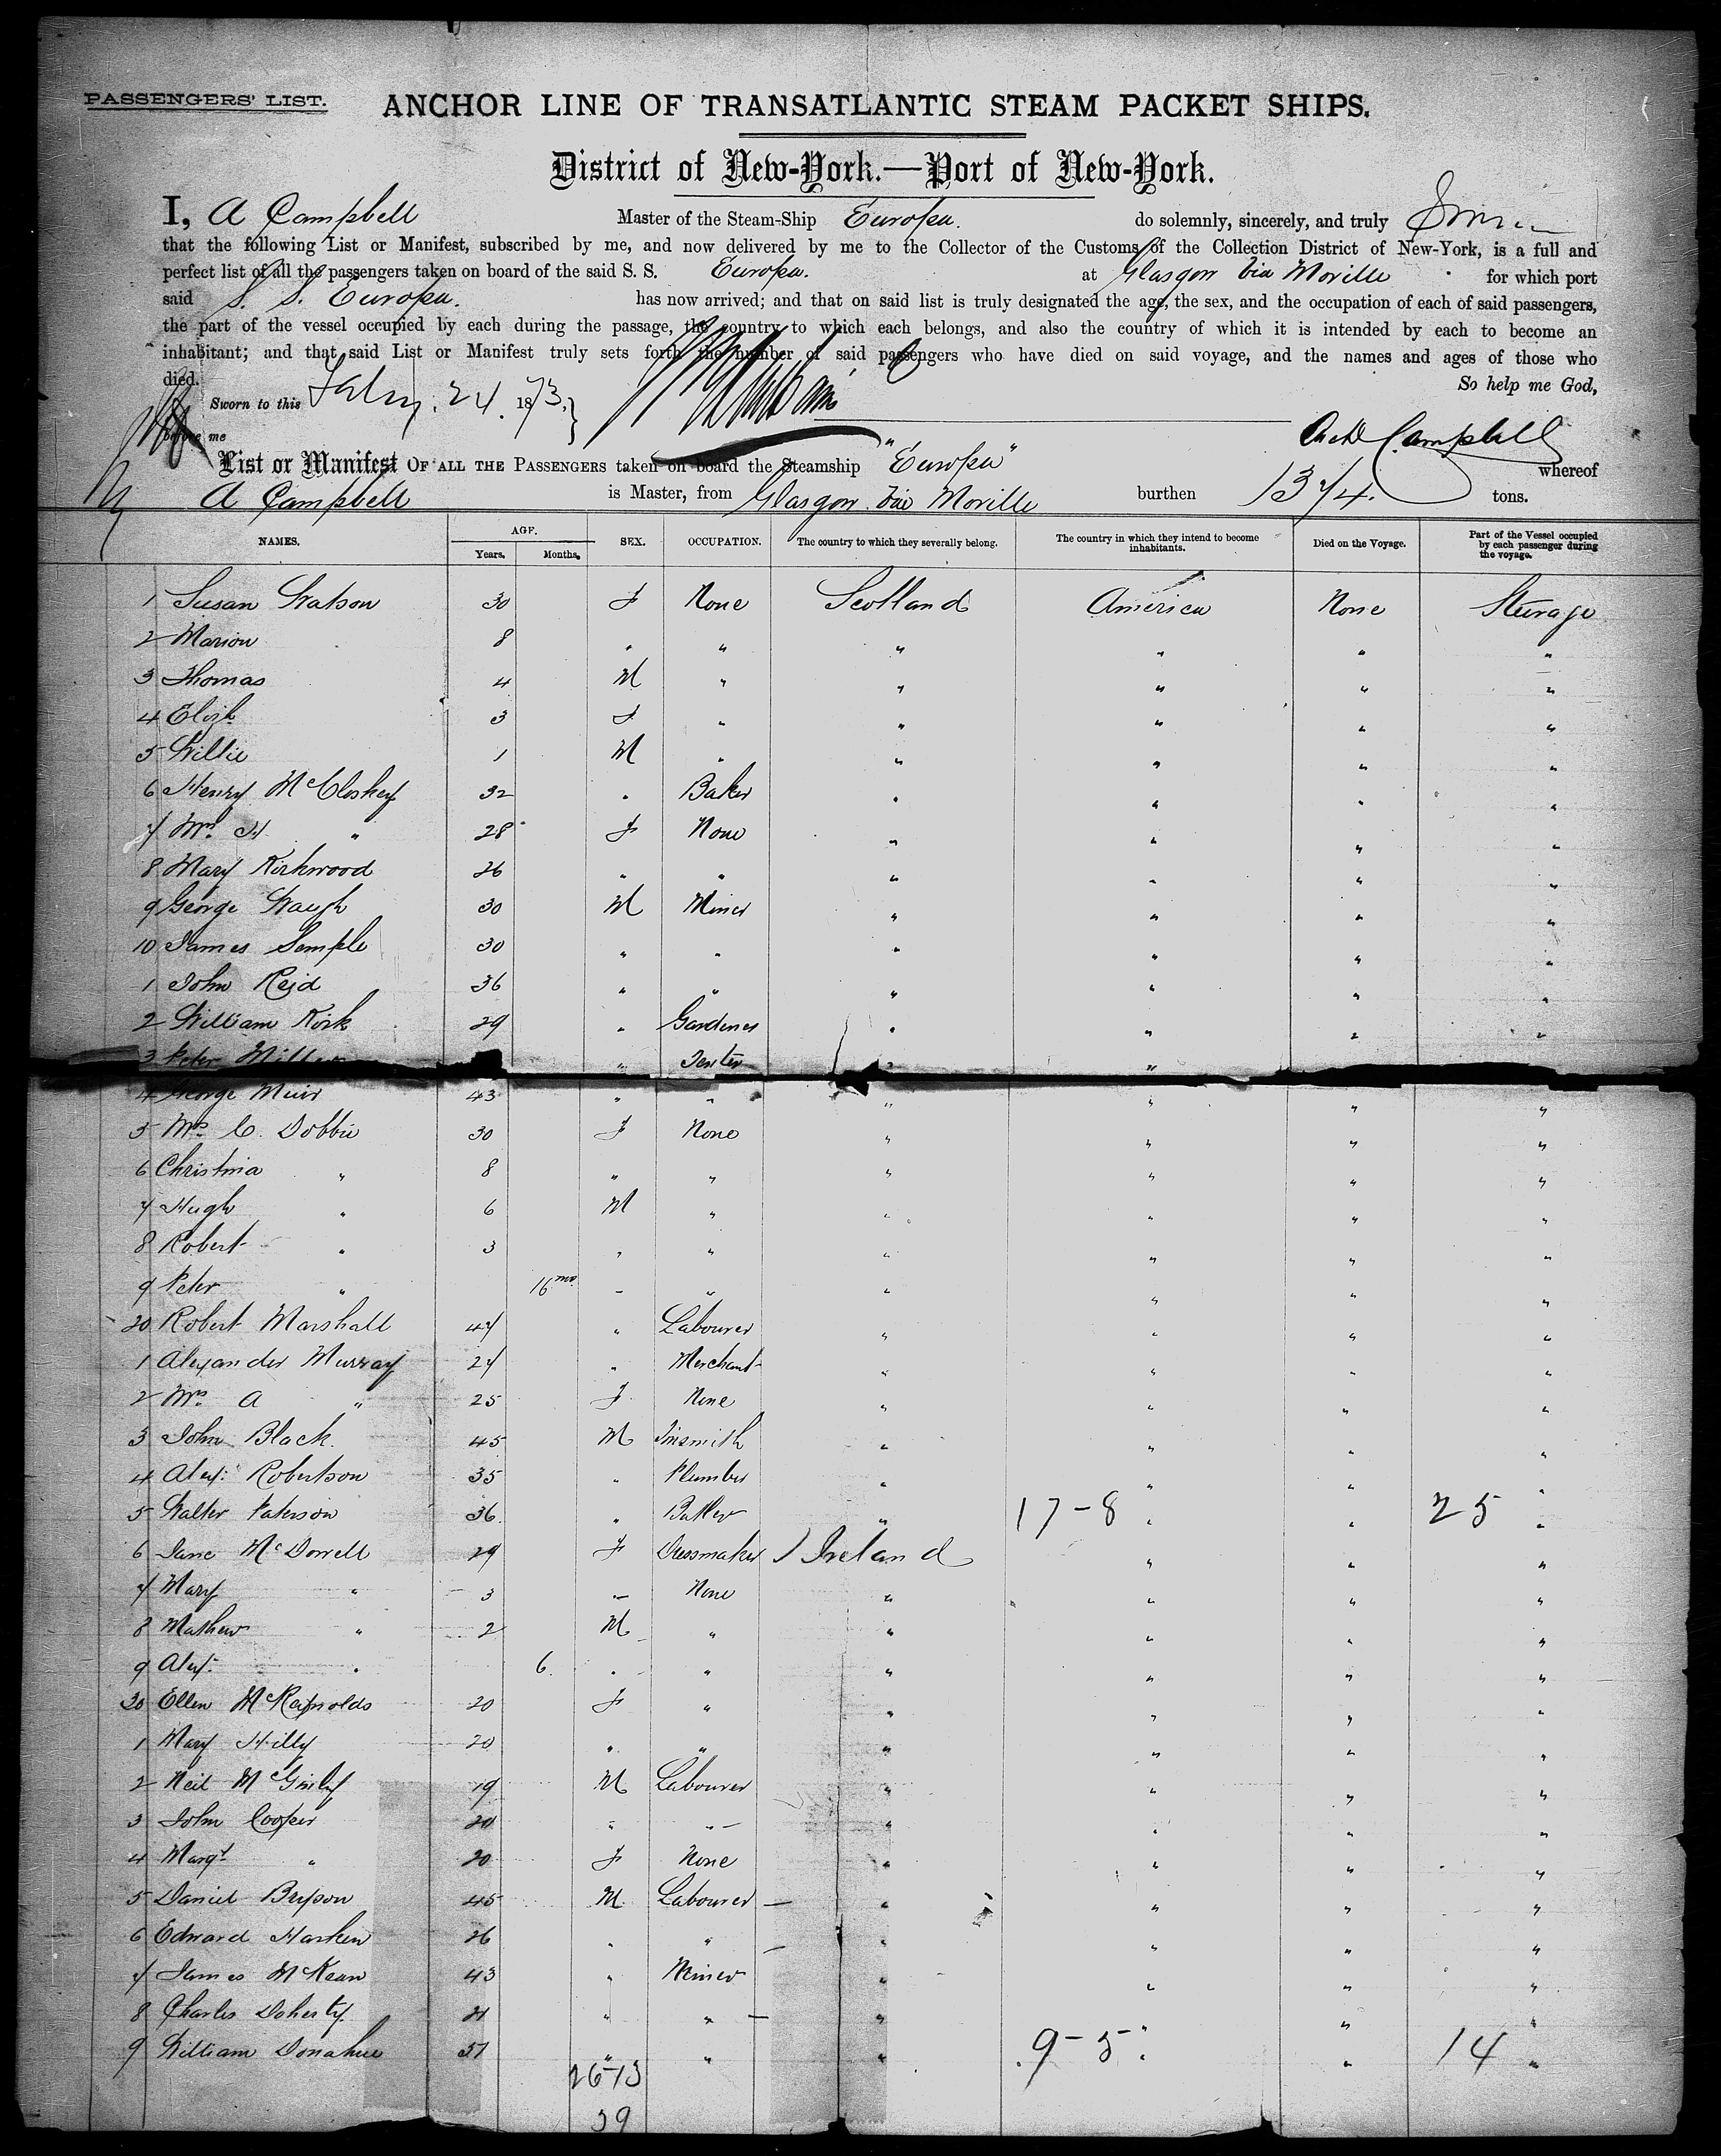 PASSENGERS' LIST. ANCHOR LINE OF TRANSATLANTIC STEAM PACKET SHIPS.
District of New-York.—Port of New-York.
I, A Campbell Master of the Steam-Ship Europa. do solemnly, sincerely, and truly
that the following List or Manifest, subscribed by me, and now delivered by me to the Collector of the Customs of the Collection District of New-York, is a full and
perfect list of all the passengers taken on board of the said S. S. Europa. at Glasgow via Moville for which port
said S. S. Europa. has now arrived; and that on said list is truly designated the age, the sex, and the occupation of each of said passengers,
the part of the vessel occupied by each during the passage, the country to which each belongs, and also the country of which it is intended by each to become an
inhabitant; and that said List or Manifest truly sets forth the number of said passengers who have died on said voyage, and the names and ages of those who
died. So help me God,
Sworn to this 24. 1873,
before me Arch Campbell
List or Manifest OF ALL THE PASSENGERS taken on board the Steamship "Europa" whereof
A Campbell is Master, from Glasgow via Moville burthen 1374. tons.
NAMES. AGE. Years. Months. SEX. OCCUPATION. The country to which they severally belong. The country in which they intend to become inhabitants. Died on the Voyage. Part of the Vessel occupied by each passenger during the voyage.
1 Susan Watson 30 F None Scotland America None Steerage
2 Marion 8 " " " " " "
3 Thomas 4 M " " " " "
4 Elizh 3 F " " " " "
5 Willie 1 M " " " " "
6 Henry McCloskey 32 " Baker " " " "
7 Mrs H " 28 F None " " " "
8 Mary Kirkwood 26 " " " " " "
9 George Waugh 30 M Miner " " " "
10 James Semple 30 " " " " " "
1 John Reid 36 " " " " " "
2 William Kirk 29 " Gardener " " " "
3 Peter Miller " " "
4 George Muir 43 " " " " " "
5 Mrs C. Dobbie 30 F None " " " "
6 Christina " 8 " " " " " "
7 Hugh " 6 M " " " " "
8 Robert " 3 " " " " " "
9 Peter " 16 mo " " " " " "
20 Robert Marshall 47 " Labourer " " " "
1 Alexander Murray 27 " Merchant " " " "
2 Mrs A " 25 F None " " " "
3 John Black. 45 M Tinsmith " " " "
4 Alex: Robertson 35 " Plumber " " " "
5 Walter Paterson 36 " " 17-8 " " 25 "
6 Jane McDowell 29 F Dressmaker Ireland " " "
7 Mary " 3 " None " " " "
8 Mathew " 2 M " " " " "
9 Alex: " 6. " " " " " "
30 Ellen McReynolds 20 F " " " " "
1 Mary Hilly 20 " " " " " "
2 Neil McGinley 19 M Labourer " " " "
3 John Cooper 20 " " " " " "
4 Margt " 20 F None " " " "
5 Daniel Bryson 45 M Labourer " " " "
6 Edward Harkin 26 " " " " " "
7 James McKean 43 " Miner " " " "
8 Charles Doherty 21 " " " " " "
9 William Donahue 37 " " " 9-5 " " 14 "
26-13
39